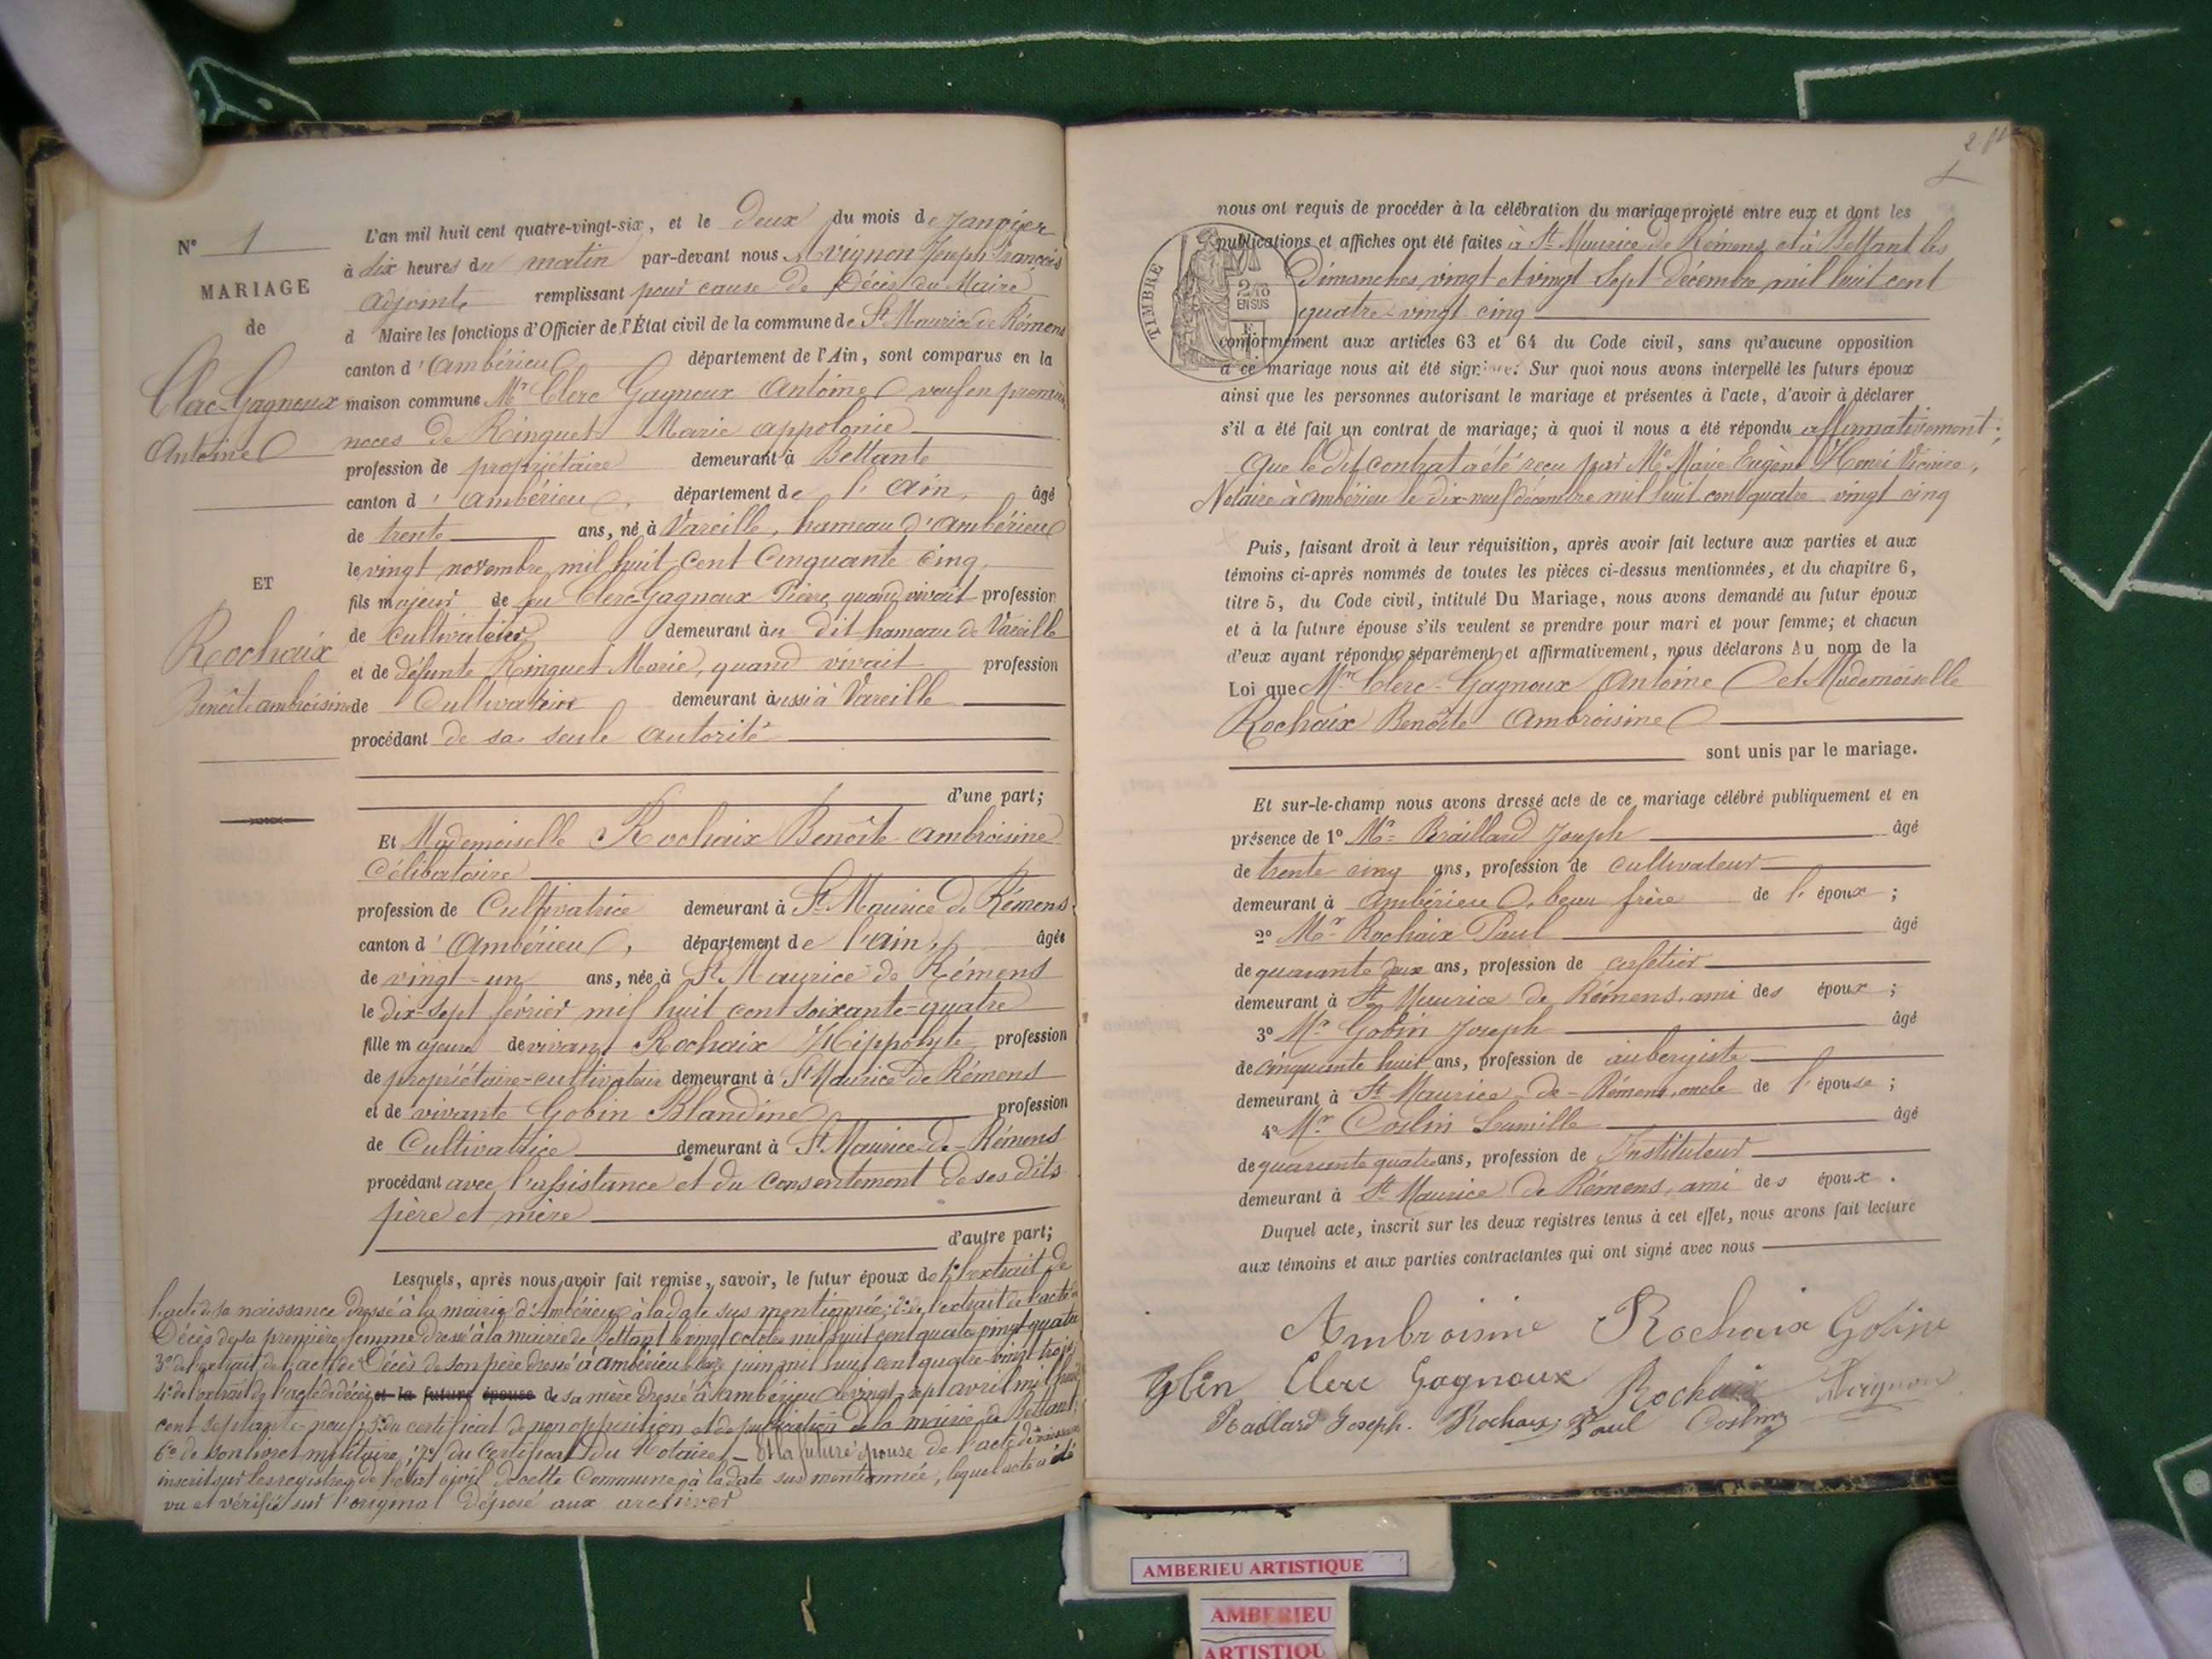 N° 1
MARIAGE
de
Clerc-Gagneux
Antoine
ET
Rochaix
Benoîte ambroisine
L'an mil huit cent quatre-vingt-six, et le deux du mois de Janvier
à dix heures du matin par-devant nous Avignon Joseph François
adjoint remplissant pour cause de Décès du Maire
d Maire les fonctions d'Officier de l'État civil de la commune de St Maurice de Rémens
canton d'Ambérieu département de l'Ain, sont comparus en la
maison commune Mr Clerc Gagneux Antoine veuf en premières
noces de Ringuet Marie appolonie
profession de propriétaire demeurant à Bettant
canton d'Ambérieu, département de l'Ain, âgé
de trente ans, né à Vareille, hameau d'Ambérieu
le vingt novembre mil huit cent Cinquante cinq
fils majeur de feu Clerc-Gagneux Pierre, quand vivait profession
de Cultivateur demeurant au dit hameau de Vareille
et de défunte Ringuet Marie, quand vivait profession
de Cultivatrice demeurant aussi à Vareille
procédant de sa seule autorité
d'une part;
Et Mademoiselle Rochaix Benoîte ambroisine
Célibataire
profession de Cultivatrice demeurant à St Maurice de Rémens
canton d'Ambérieu, département de l'Ain, âgée
de vingt-un ans, née à St Maurice de Rémens
le dix-sept février mil huit cent soixante-quatre
fille majeure de vivant Rochaix Hippolyte profession
de propriétaire-cultivateur demeurant à St Maurice de Rémens
et de vivante Gobin Blandine profession
de Cultivatrice demeurant à St Maurice-de-Rémens
procédant avec l'assistance et du consentement de ses dits
père et mère
d'autre part;
Lesquels, après nous avoir fait remise, savoir, le futur époux de 1° l'extrait de
l'acte de sa naissance dressé à la mairie d'Ambérieu à la date sus mentionnée; 2° de l'extrait de l'acte de
Décès de sa première femme dressé à la mairie de Bettant le vingt octobre mil huit cent quatre vingt quatre
3° de l'extrait de l'acte de Décès de son père dressé à ambérieu le juin mil huit cent quatre-vingt trois
4° de l'extrait de l'acte de décès et la future épouse de sa mère dressé à ambérieu le vingt-sept avril mil huit
cent septante-neuf; 5° du certificat de non opposition et de publication de la mairie de Bettant;
6° de son livret militaire; 7° du Certificat du Notaire, - Et la future épouse de l'acte de naissance
inscrit sur les registres de l'état civil de cette Commune à la date sus mentionnée, lequel acte a été
vu et vérifié sur l'original déposé aux archives
2
nous ont requis de procéder à la célébration du mariage projeté entre eux et dont les
publications et affiches ont été faites à St Maurice de Rémens et à Bettant les
Dimanches vingt et vingt sept décembre mil huit cent
quatre-vingt cinq
TIMBRE
2/10
EN SUS
conformément aux articles 63 et 64 du Code civil, sans qu'aucune opposition
à ce mariage nous ait été signifiée. Sur quoi nous avons interpellé les futurs époux
ainsi que les personnes autorisant le mariage et présentes à l'acte, d'avoir à déclarer
s'il a été fait un contrat de mariage; à quoi il nous a été répondu affirmativement;
Que le dit contrat a été reçu par Me Marie Eugène Henri Vicaire,
Notaire à Ambérieu le dix-neuf décembre mil huit cent quatre-vingt cinq
Puis, faisant droit à leur réquisition, après avoir fait lecture aux parties et aux
témoins ci-après nommés de toutes les pièces ci-dessus mentionnées, et du chapitre 6,
titre 5, du Code civil, intitulé Du Mariage, nous avons demandé au futur époux
et à la future épouse s'ils veulent se prendre pour mari et pour femme; et chacun
d'eux ayant répondu séparément et affirmativement, nous déclarons Au nom de la
Loi que Mr Clerc-Gagneux Antoine et Mademoiselle
Rochaix Benoîte Ambroisine
sont unis par le mariage.
Et sur-le-champ nous avons dressé acte de ce mariage célébré publiquement et en
présence de 1° Mr Braillard Joseph âgé
de trente cinq ans, profession de cultivateur
demeurant à Ambérieu, beau frère de l'époux;
2° Mr Rochaix Paul âgé
de quarante deux ans, profession de cafetier
demeurant à St Maurice de Rémens, ami des époux;
3° Mr Gobin Joseph âgé
de cinquante huit ans, profession de aubergiste
demeurant à St Maurice-de-Rémens, oncle de l'épouse;
4° Mr Coslin Camille âgé
de quarante quatre ans, profession de Instituteur
demeurant à St Maurice de Rémens, ami des époux.
Duquel acte, inscrit sur les deux registres tenus à cet effet, nous avons fait lecture
aux témoins et aux parties contractantes qui ont signé avec nous
Ambroisine Rochaix Gobin
Gobin Clerc Gagneux Rochaix Avignon
Baillard Joseph. Rochaix Paul Coslin
AMBERIEU ARTISTIQUE
AMBERIEU
ARTISTIQU